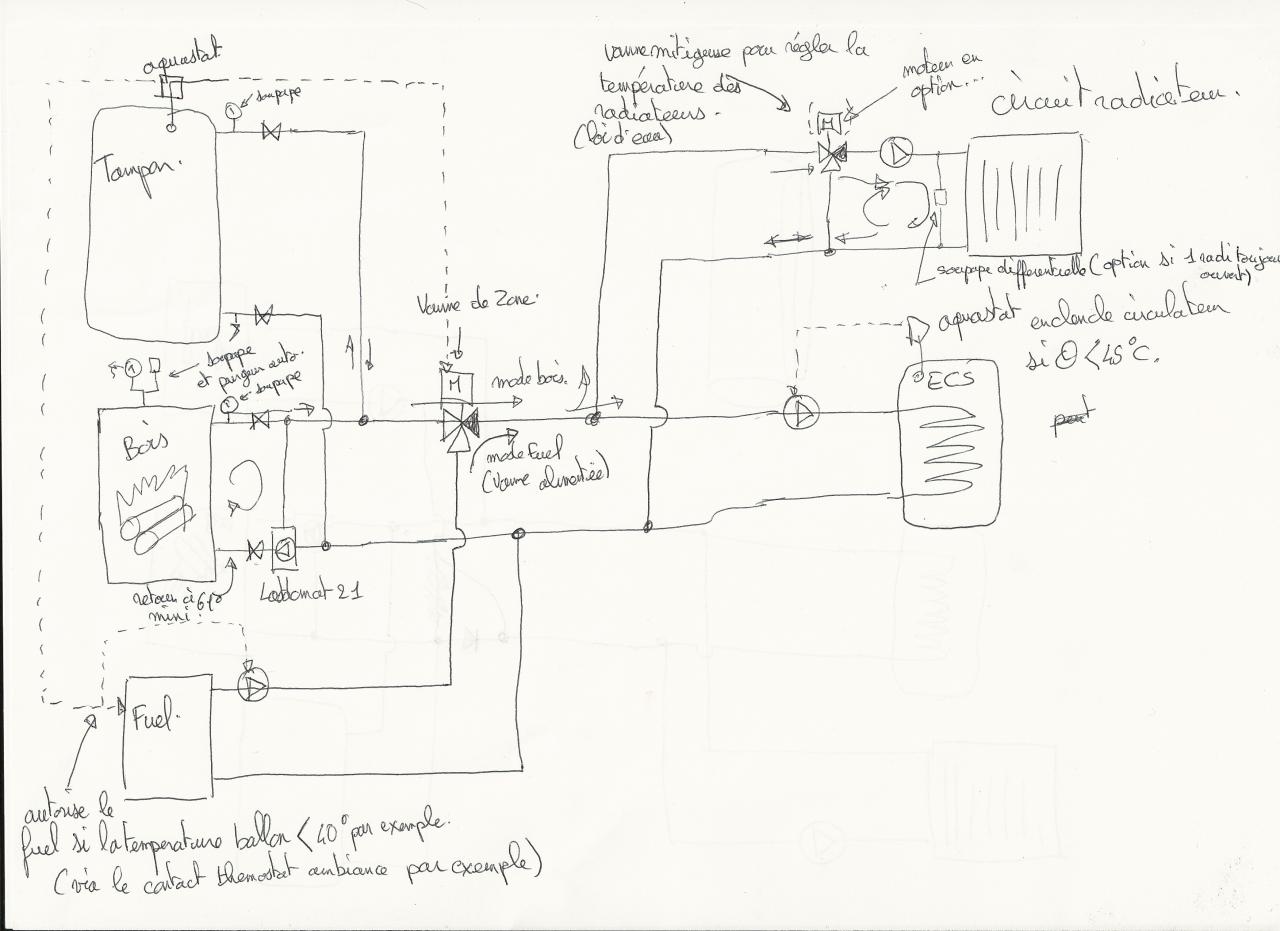 aquastat
soupape
Tampon.
vanne mitigeuse pour régler la
température des
radiateurs.
(loi d'eau)
moteur en
option...
circuit radiateur.
M
soupape differentielle (option si 1 radi toujours
ouvert)
Vanne de Zone.
M
mode bois.
mode Fuel
(Vanne alimentée)
aquastat enclenche circulateur
si θ < 45°C.
ECS
soupape
et purgeur auto.
soupape
Bois
retour à 61°
mini.
Laddomat 21
Fuel.
autorise le
fuel si la temperature ballon < 40° par exemple.
(via le contact themostat ambiance par exemple)